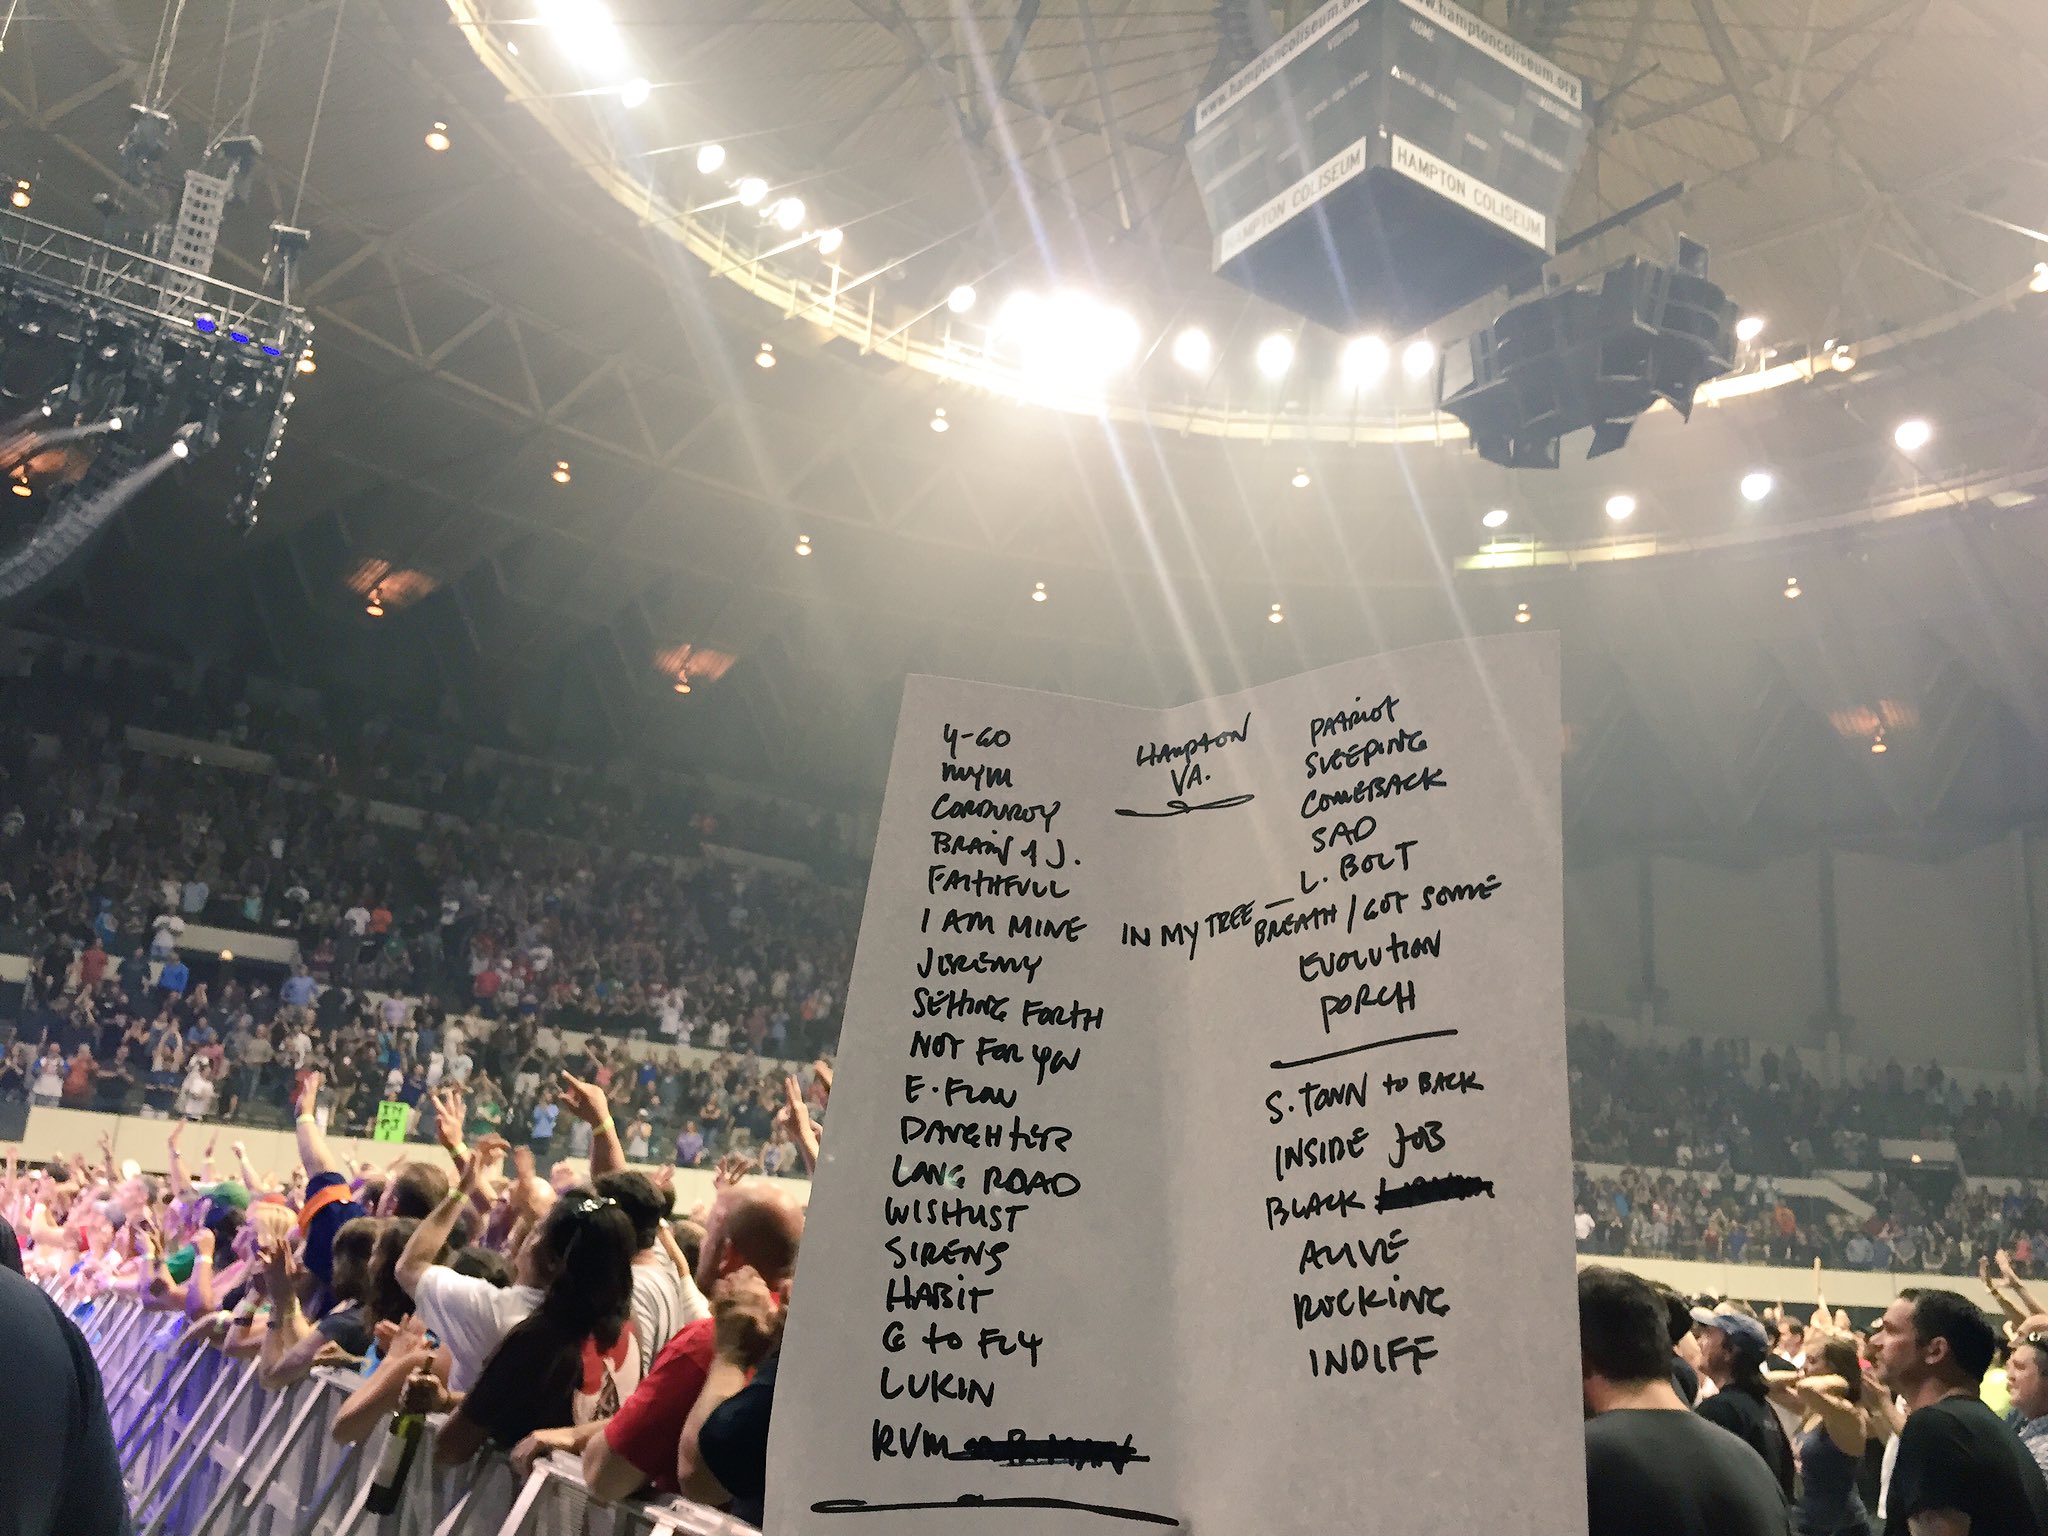 www.hamptoncoliseum.org
www.hamptoncoliseum.org
VISITOR
HOME
HAMPTON COLISEUM
HAMPTON COLISEUM
HAMPTON
VA.
4-GO
MYM
CORDUROY
BRAIN of J.
FAITHFULL
I AM MINE
JEREMY
SETTING FORTH
NOT FOR YOU
E. FLOW
DAUGHTER
LONG ROAD
WISHLIST
SIRENS
HABIT
G to FLY
LUKIN
RVM
PATRIOT
SLEEPING
COMEBACK
SAD
L. BOLT
IN MY TREE — BREATH / GOT SOME
EVOLUTION
PORCH
S. TOWN to BACK
INSIDE JOB
BLACK
ALIVE
ROCKING
INDIFF